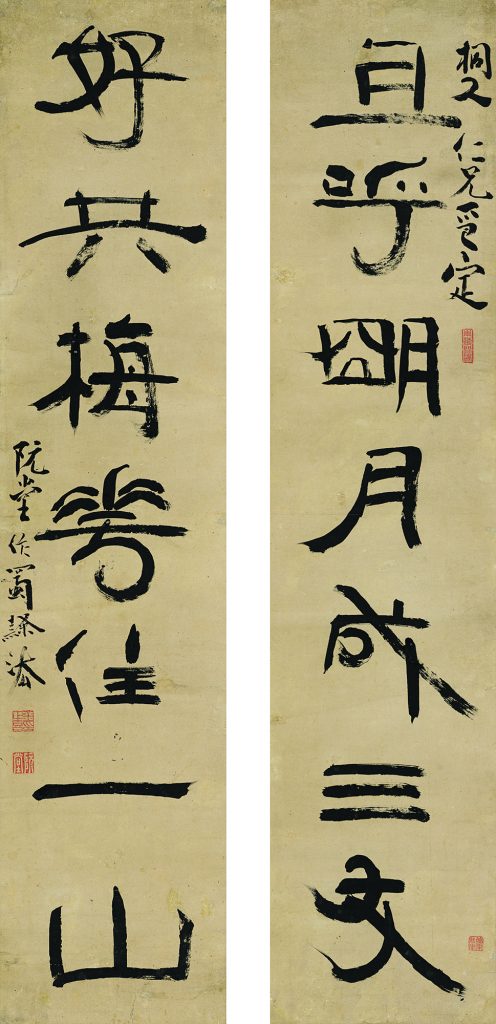 桐人仁兄定
且呼朙月成三友
好共梅花住一山
阮堂作蜀隸法